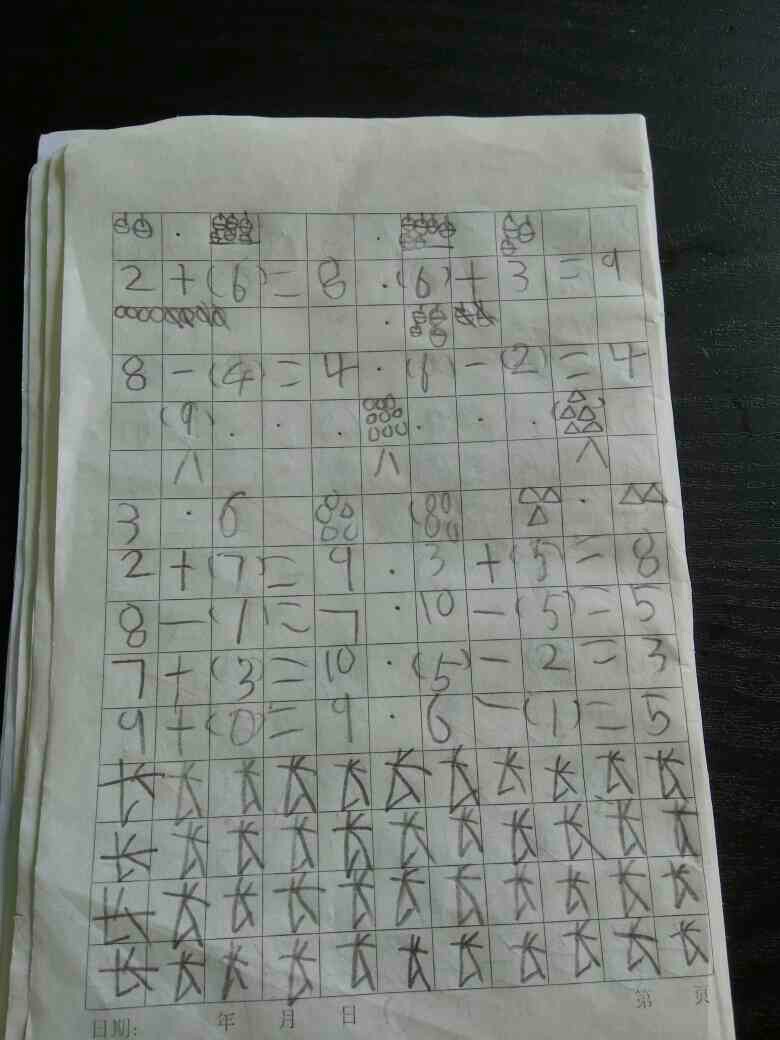 2 + (6) = 8 · (6) + 3 = 9
8 - (4) = 4 · (6) - (2) = 4
(9)
∧ ∧ ∧
3 · 6
2 + (7) = 9 · 3 + (5) = 8
8 - (1) = 7 · 10 - (5) = 5
7 + (3) = 10 · (5) - 2 = 3
9 + (0) = 9 · 6 - (1) = 5
长 长 长 长 长 长 长 长 长 长 长
长 长 长 长 长 长 长 长 长 长 长
长 长 长 长 长 长 长 长 长 长 长
长 长 长 长 长 长 长 长 长 长 长
日期: 年 月 日 第 页